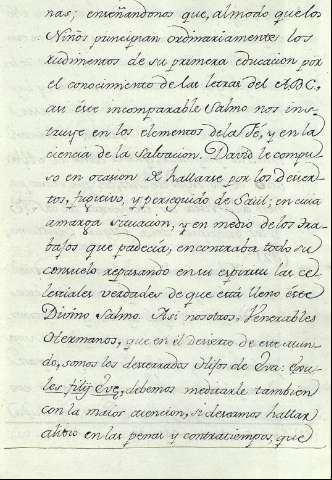 nas; enseñandonos que, al modo que los
Niños principian ordinariamente los
rudimentos de su primera educacion por
el conocimiento de las letras del ABC,
asi este incomparable Salmo nos ins-
truye en los elementos dela Fé, y en la
ciencia de la Salvacion. David le compu-
so en ocasion de hallarse por los desier-
tos, fugitivo, y perseguido de Saul; en cuia
amarga situacion, y en medio de los tra-
bajos que padecia, encontraba todo su
consuelo repasando en su espiritu las ce-
lestiales verdades de que está lleno este
Divino Salmo. Asi nosotros, Venerables
Hermanos, que en el desierto de este mun-
do, somos los desterrados Hijos de Eva: exu-
les filij Evę, debemos meditarle tambien
con la maior atencion, si deseamos hallar
alivio en las penas y contratiempos, que